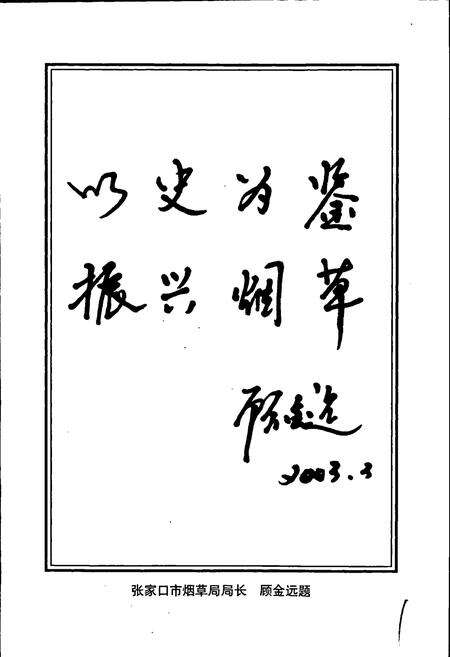 以史为鉴
振兴烟草
顾金远
2003.3
张家口市烟草局局长 顾金远题